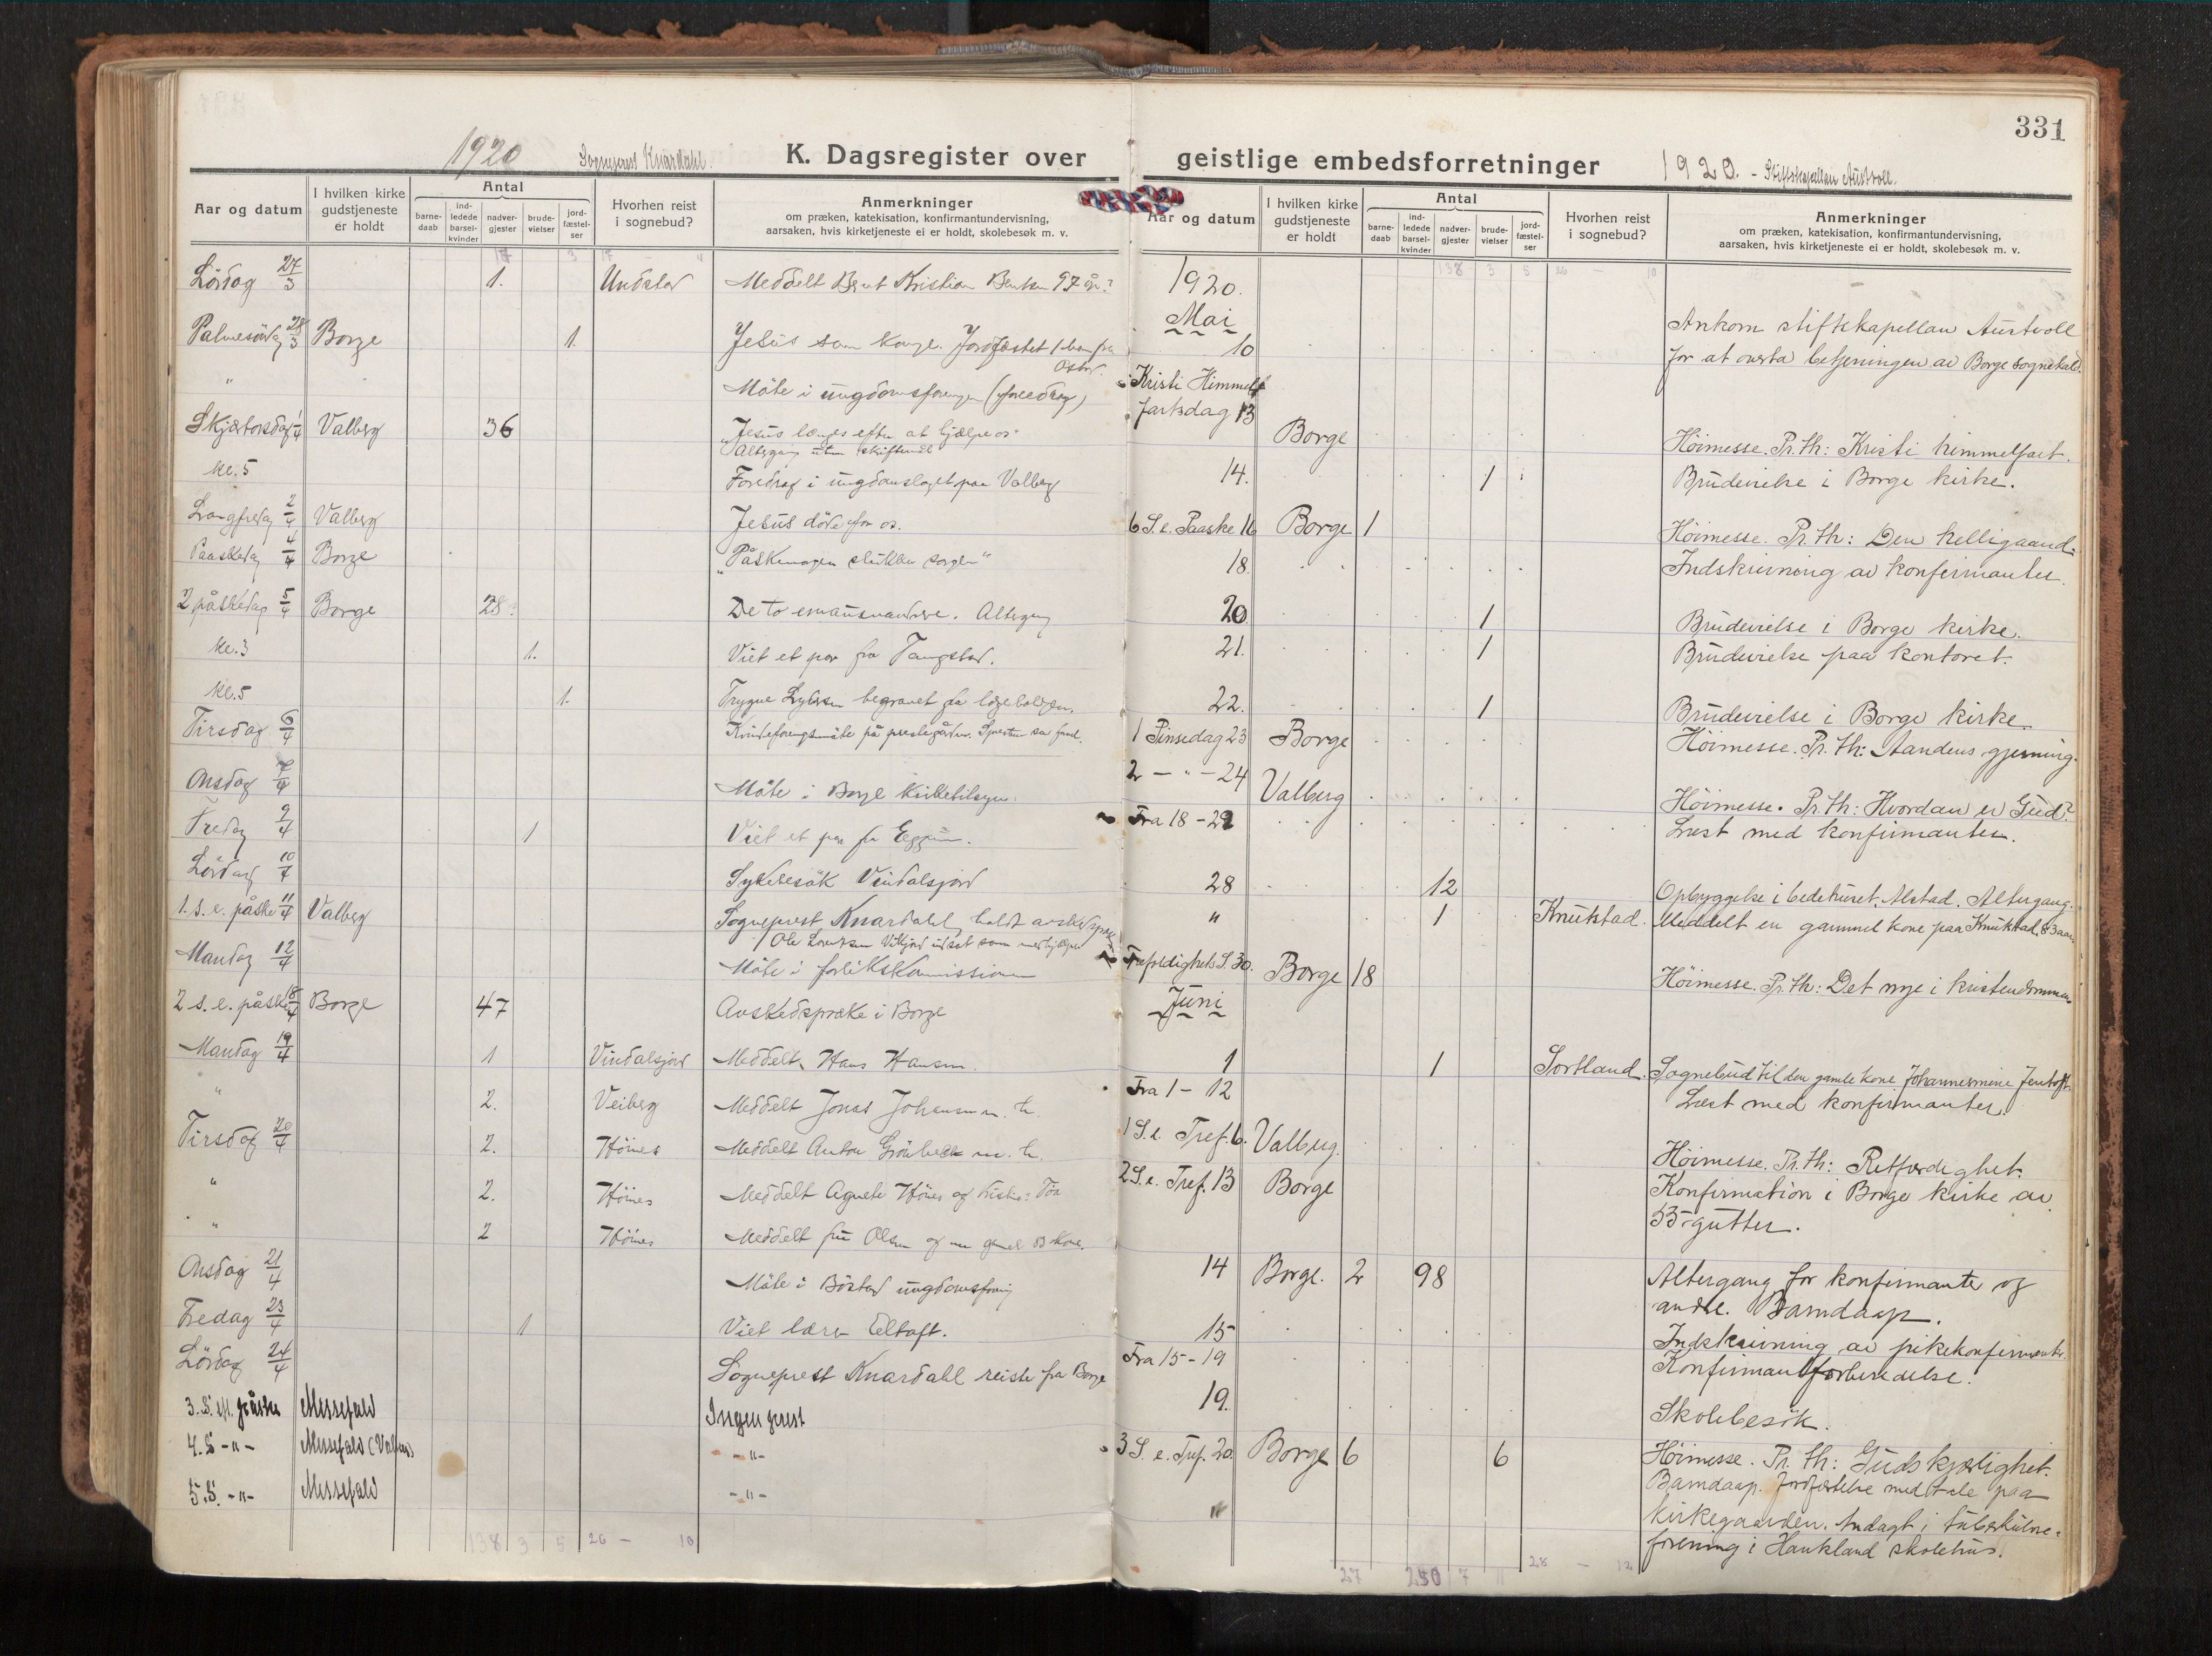 331
1920 Sogneprest Knardahl.
K. Dagsregister over
geistlige embedsforretninger
1920. - Stiftskapellan Austvoll.
Aar og datum
I hvilken kirke gudstjeneste er holdt
Antal
barne-daab
ind-ledede barsel-kvinder
nadver-gjester
brude-vielser
jord-fæstel-ser
Hvorhen reist i sognebud?
Anmerkninger
om præken, katekisation, konfirmantundervisning,
aarsaken, hvis kirketjeneste ei er holdt, skolebesøk m. v.
Lördag 27/3 1. Undstad Meddelt Bernt Kristian Bentsen 97 år
Palmesöndag 28/3 Borge 1. Jesus som konge. Jordfæstet 1 barn fra
" Möte i ungdomsforeningen (foredrag)
Skjærtorsdag 1/4 Valberg 36 "Jesus længes efter at hjælpe os"
Altergang uten skriftemål
kl. 5 Foredrag i ungdomslaget paa Valberg
Langfredag 2/4 Valberg Jesus döde for os.
Paaskedag 4/4 Borge "Påskemorgen slukker sorgen"
2 påskedag 5/4 Borge 28. De to emausvandrere. Altergang
kl. 3 1. Viet et par fra Tangstad.
kl. 5 1. Trygve begravet fra
Tirsdag 6/4 Kvindeforeningsmöte på prestegården.
Onsdag 7/4 Möte i Borge kirketilsyn.
Fredag 9/4 1 Viet et par fra Eggum.
Lördag 10/4 Sykebesök Vendalsjord
1. s. e. påske 11/4 Valberg Sogneprest Knardahl holdt avskedspræk.
Mandag 12/4 Möte i forlikskommissionen
2 s. e. påske 18/4 Borge 47 Avskedspræke i Borge
Mandag 19/4 1 Vindalsjord Meddelt Hans Hansen.
" 2. Veiberg Meddelt Jonas Johansen m. h.
Tirsdag 20/4 2. Höines Meddelt Anton Grönbech m. h.
" 2. Höines Meddelt Agnete Höines og
" 2 Höines Meddelt fru Olsen og en
Onsdag 21/4 Möte i Böstad ungdomsforening
Fredag 23/4 1 Viet lærer Eltoft.
Lördag 24/4 Sogneprest Knardahl reiste fra Borge
3. S. eft. påske Messefald Ingen prest
4. S -"- Messefald (Valberg) -"-
5. S. -"- Messefald -"-
138 3 5 26 - 10
Aar og datum
I hvilken kirke gudstjeneste er holdt
Antal
barne-daab
ind-ledede barsel-kvinder
nadver-gjester
brude-vielser
jord-fæstel-ser
Hvorhen reist i sognebud?
Anmerkninger
om præken, katekisation, konfirmantundervisning,
aarsaken, hvis kirketjeneste ei er holdt, skolebesøk m. v.
138 3 5 26 - 10
1920.
Mai
10 Ankom stiftskapellan Austvoll
for at overta betjeningen av Borge sognekald.
Kristi Himmel-
fartsdag 13 Borge Höimesse. Pr. th: Kristi himmelfart.
14. 1 Brudevielse i Borge kirke.
6 S. e. Paaske 16 Borge 1 Höimesse. Pr. th: Den helligaand.
18. Indskrivning av konfirmanter.
20. 1 Brudevielse i Borge kirke.
21. 1 Brudevielse paa kontoret.
22. 1 Brudevielse i Borge kirke.
1 Pinsedag 23 Borge Höimesse. Pr. th: Aandens gjerning.
2 - " - 24 Valberg Höimesse. Pr. th: Hvordan er Gud?
Fra 18 - 22 Læst med konfirmanter.
28 12 Opbyggelse i bedehuset, Alstad. Altergang.
" 1 Knutstad. Meddelt en gammel kone paa Knutstad, 83 aar
Trefoldighets S. 30. Borge 18 Höimesse. Pr. th: Det nye i kristendommen
Juni
1 1 Sortland. Sognebud til den gamle kone Johannesmine Jentoft.
Fra 1 - 12 Læst med konfirmanter.
1 S. e. Tref. 6. Valberg. Höimesse. Pr. th: Retfærdighet.
2 S. e. Tref. 13 Borge Konfirmation i Borge kirke av
35 gutter.
14 Borge. 2 98 Altergang for konfirmanter og
andre. Barndaap.
15 Indskrivning av pikekonfirmanter.
Fra 15 - 19 Konfirmantforberedelse.
19. Skolebesök.
3 S. e. Tref. 20. Borge 6 6 Höimesse. Pr. th: Guds kjærlighet.
Barndaap. Jordfæstelse med tale paa
" kirkegaarden. Andagt i tuberkulose-
forening i Haukland skolehus.
27 250 7 11 28 - 12